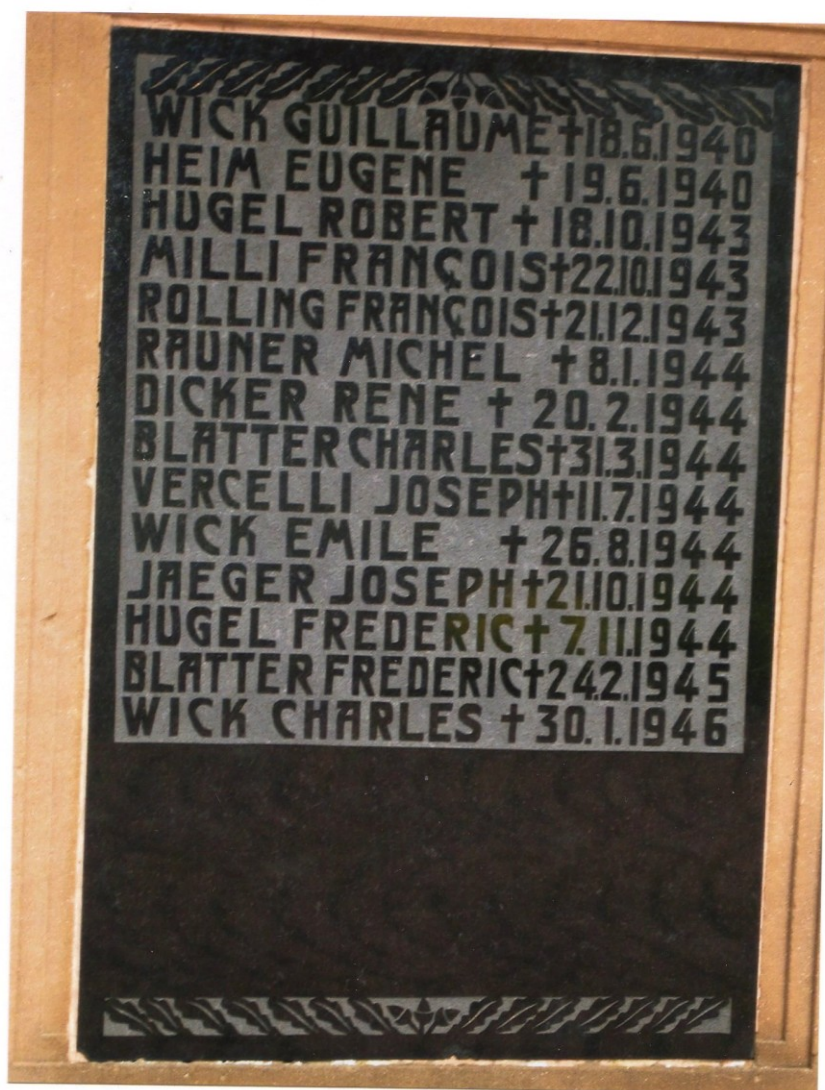 WICK GUILLAUME †18.6.1940
HEIM EUGENE † 19.6.1940
HUGEL ROBERT † 18.10.1943
MILLI FRANÇOIS †22.10.1943
ROLLING FRANÇOIS †21.12.1943
RAUNER MICHEL † 8.1.1944
DICKER RENE † 20.2.1944
BLATTER CHARLES †31.3.1944
VERCELLI JOSEPH †11.7.1944
WICK EMILE † 26.8.1944
JAEGER JOSEPH †21.10.1944
HUGEL FREDERIC † 7.11.1944
BLATTER FREDERIC †24.2.1945
WICK CHARLES † 30.1.1946